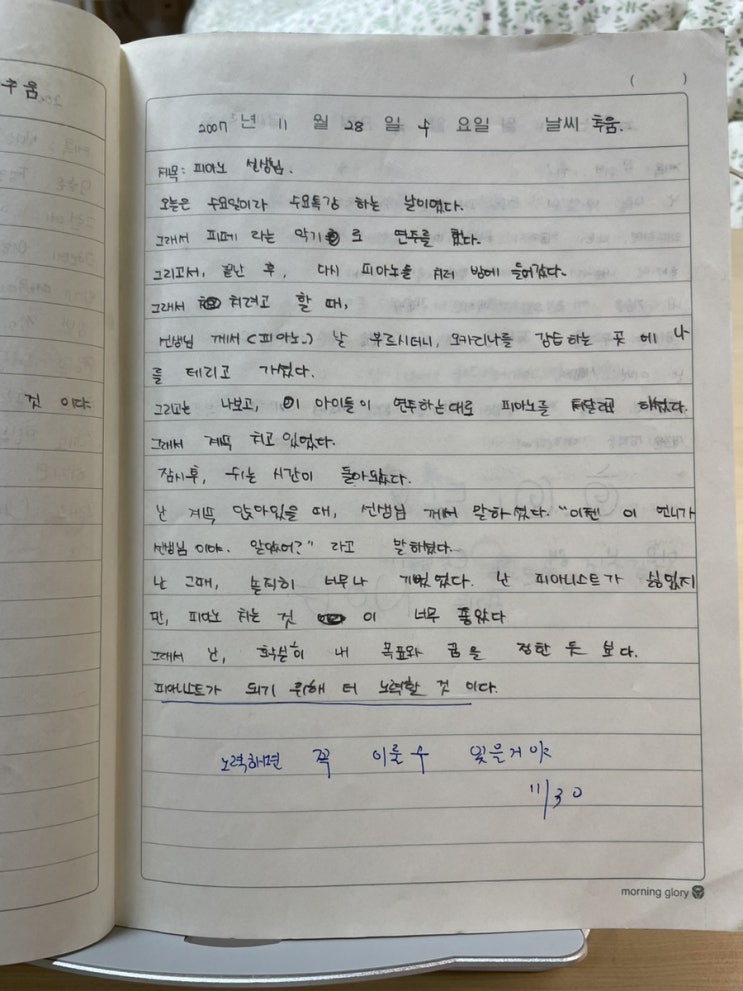 추움
( )
2007 년 11 월 28 일 수 요일 날씨 추움.
제목: 피아노 선생님.
오늘은 수요일이라 수요특강 하는 날이였다.
그래서 피페 라는 악기로 연주를 했다.
그리고서, 끝난 후, 다시 피아노를 치러 방에 들어갔다.
그래서 치려고 할 때,
선생님 께서(피아노.) 날 부르시더니, 오카리나를 강습하는 곳 에 나
를 데리고 가셨다.
그리고는 나보고, 이 아이들이 연주하는대로 피아노를 쳐달라고 하셨다.
그래서 계속 치고 있었다.
잠시후, 쉬는 시간이 돌아왔다.
난 계속 앉아있을 때, 선생님 께서 말하셨다. "이젠 이 언니가
선생님 이야. 알았어?" 라고 말하셨다.
난 그때, 솔직히 너무나 기뻤었다. 난 피아니스트가 싫었지
만, 피아노 치는 것 이 너무 좋았다
그래서 난, 확실히 내 목표와 꿈을 정한 듯 보다.
피아니스트가 되기 위해 더 노력할 것 이다.
것 이다.
노력하면 꼭 이룰 수 있을거야
11/30
morning glory